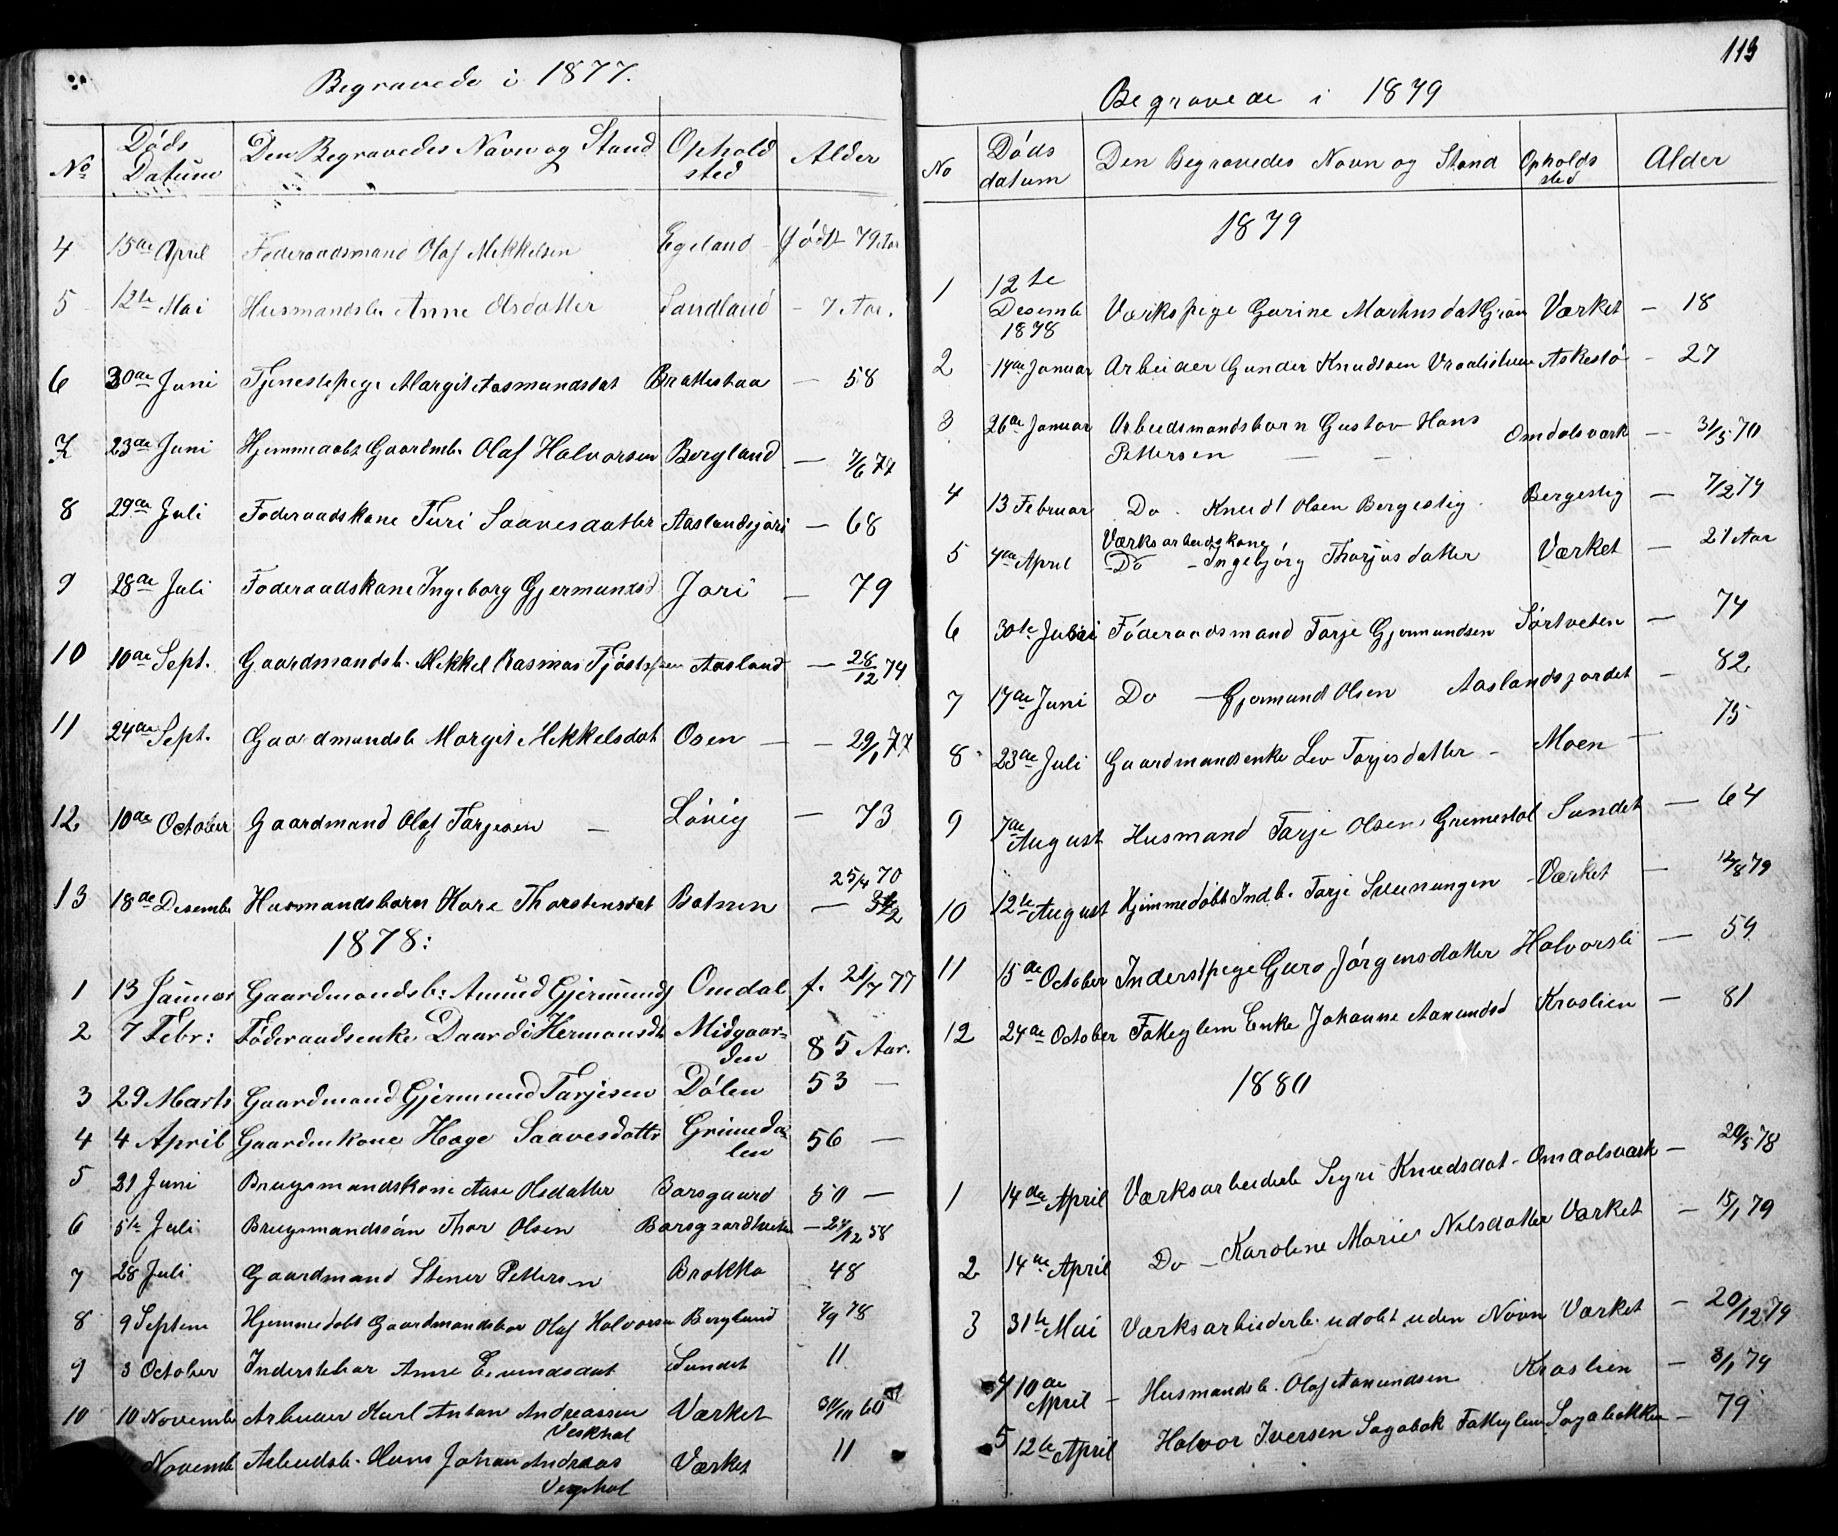 Begravede i 1877.
No Døds Datum Den Begravedes Navn og Stand Ophold sted Alder
4 15de April Føderaadsmand Olaf Mikkelsen Egeland født 79 Aar
5 12te Mai Husmandsb. Anne Olsdatter Sandland - 7 Aar.
6 30de Juni Tjenestepige Margit Aasmundsdat Brattestaa - 58
7 23de Juni Hjemmedøbt Gaardmb. Olaf Halvorsen Bergland - 7/6 77
8 29de Juli Føderaadskone Turi Saavesdatter Aaslandsjori - 68
9 28de Juli Føderaadskone Ingeborg Gjermundsd Jori - 79
10 10de Sept. Gaardmandsb. Mikkel Rasmus Tjøstolsen Aasland - 28/12 74
11 24de Sept. Gaardmandsb Margit Mikkelsdat Osen - - 29/1 77
12. 10de October Gaardmand Olaf Tarjesen - Lønig - 73
13 18de Desemb Husmandsbarn Kare Thorstensdat Botnen 25/4 70 -
1878:
1 13 Januar Gaardmandsb: Amund Gjermunds Omdal f. 21/7 77
2 7 Febr: Føderaadsenke Daardi Hermansdt Midgaarden 85 Aar.
3 29 Marts Gaardmand Gjermund Tarjesen Dølen 53 -
4 4 April Gaardmkone Hage Saavesdattr Grimedalen 56 -
5 21 Juni Brugsmandskone Aase Olsdatter Borsgaard 50 -
6 5te Juli Brugsmandssøn Thor Olsen - 24/12 58
7 28 Juli Gaardmand Stener Pettersen Brokka 48
8 9 Septem Hjemmedøbt Gaardmandsbar Olaf Halvorsen Bergland 7/9 78
9 3 October Inderstebar Anne Sundet 11
10 10 Novemb Arbeider Karl Anton Andreassen Værket
Novemb Arbeidsb. Hans Johan Andreas Værket 11
113
Begravede i 1879
No Døds datum Den Begravedes Navn og Stand Opholds sted Alder
1879
1 12te Desemb 1878 Værkspige Gurine Værket - 18
2 14de Januar Arbeider Gunder Knudsen Askestø - 27
3 26de Januar Arbeidsmandsbarn Gustav Hans Pettersen Omdalsværk - 31/5 70
4 13 Februar Do. Knudt Olsen Bergestig. Bergestig - 7/2 79
5 4de April Værksarbeidskone Do - Ingebjørg Thorjusdatter Værket - 21 Aar
6 30te Føderaadsmand Tarje Gjermundsen Sørtveten - 74
7 17de Juni Do - Gjermund Olsen Aaslandsjordet - 82
8 23de Juli Gaardmandsenke Liv Tarjesdatter - Moen - 75
9 7de August Husmand Tarje Olsen Grimestøl Sundet - 64
10 12te August Hjemmedøbt Indb. Tarje Sveinungen Værket - 12/8 79
11 15de October Inderstpige Guro Jørgensdatter Halvorsli - 59
12 24de October Fattiglem Enke Johanne Aanundsd Kroslien - 81
1880
1 14de April Værksarbeiderb Sigri Knudsdat - Omdalsværk - 20/5 78
2 14de April Do - Karoline Marie Nilsdatter Værket - 15/1 79
3 31te Mai Værksarbeiderb. udøbt uden Navn Værket - 20/12 79
4 10de April - Husmandsb. Olaf Aanundsen Kroslien - 3/1 79
5 12te April Halvor Iversen Sagabæk Fattiglem Sagabækken - 79